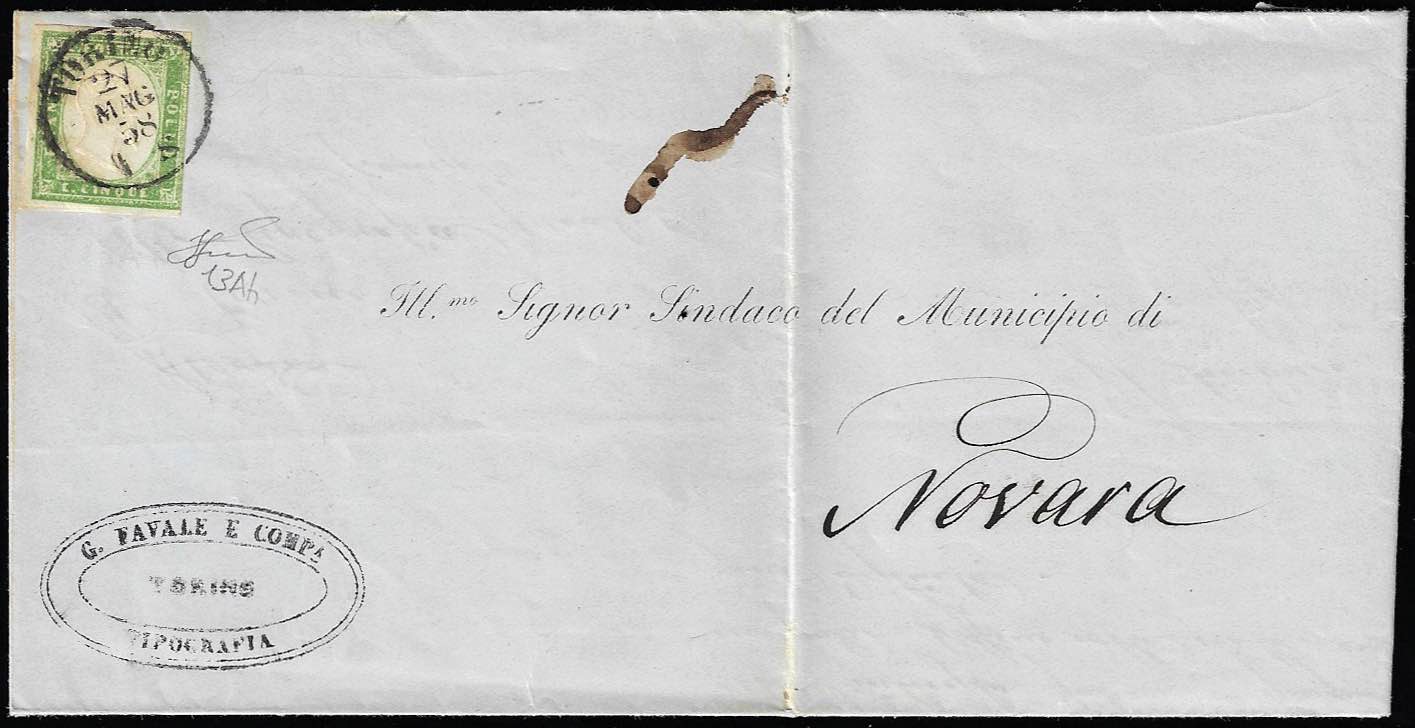 TORINO
27
MAG
58
POLLO
C. CINQUE
13Ah
Ill.mo Signor Sindaco del Municipio di
Novara
G. FAVALE E COMPA
TORINO
TIPOGRAFIA